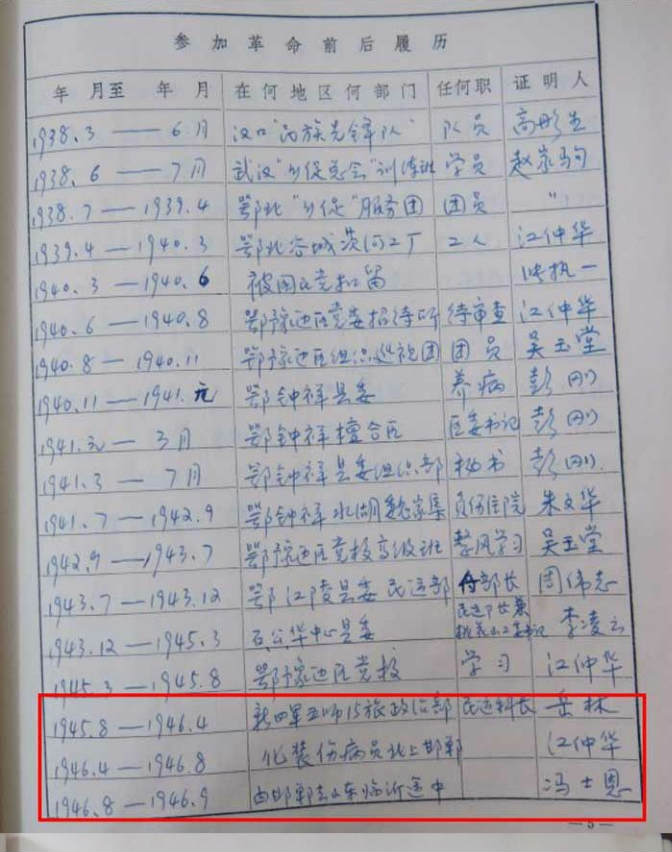 参加革命前后履历
年 月至 年 月 在何地区何部门 任何职 证明人
1938.3 —— 6月 汉口"民族先锋队" 队员 高彤生
1938.6 —— 7月 武汉"乡促总会"训练班 学员 赵家驹
1938.7 — 1939.4 鄂北"乡促"服务团 团员 "
1939.4 — 1940.3 鄂北谷城茨河工厂 工人 江仲华
1940.3 — 1940.6 被国民党扣留 执一
1940.6 — 1940.8 鄂豫边区党委招待所 待审查 江仲华
1940.8 — 1940.11 鄂豫边区组织巡视团 团员 吴玉堂
1940.11 — 1941.元 鄂钟祥县委 养病 彭刚
1941.元 — 3月 鄂钟祥檀合区 区委书记 彭刚
1941.3 — 7月 鄂钟祥县委组织部 秘书 彭刚
1941.7 — 1942.9 鄂钟祥水湖魏家集 负伤住院 朱文华
1942.9 — 1943.7 鄂豫边区党校高级班 整风学习 吴玉堂
1943.7 — 1943.12 鄂江陵县委民运部 付部长 周伟志
1943.12 — 1945.3 石公华中心县委 民运部长兼 书记 李凌云
1945.3 — 1945.8 鄂豫边区党校 学习 江仲华
1945.8 — 1946.4 新四军五师15旅政治部 民运科长 岳林
1946.4 — 1946.8 化装伤病员北上邯郸 江仲华
1946.8 — 1946.9 由邯郸去山东临沂途中 冯士恩
— 5 —